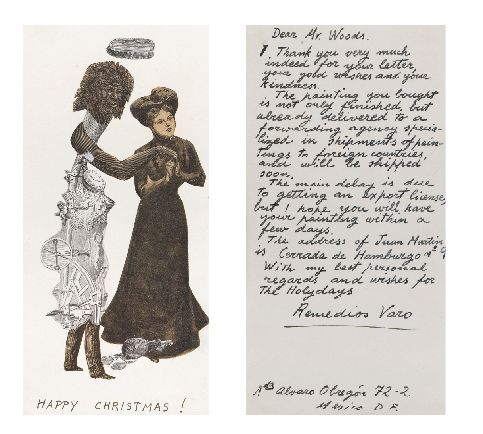 HAPPY CHRISTMAS !
Dear Mr. Woods.
I. Thank you very much
indeed for your letter,
your gold wishes and your
kindness.
The painting you bought
is not only finished, but
already delivered to a
forwarding agency specia-
lized in shipments of pain-
tings to foreign countries,
and will be shipped
soon.
The main delay is due
to getting an export license,
but I hope you will have
your painting within a
few days.
The address of Juan Martin
is Cerrada de Hamburgo Nº 9
With my best personal
regards and wishes for
the Holydays
Remedios Varo
Alvaro Obregón 72-2
Mexico D.F.